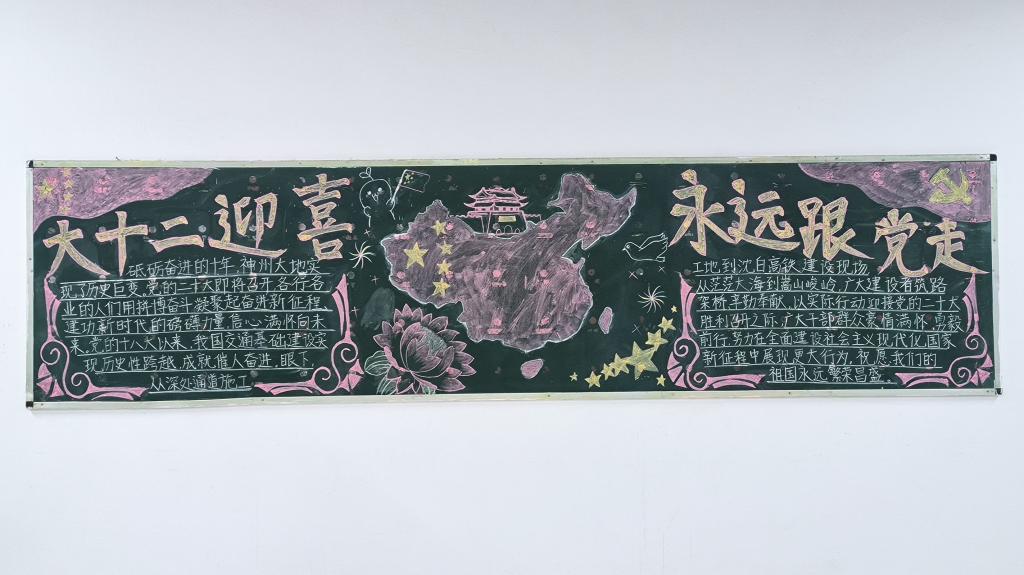 大十二迎喜
砥砺奋进的十年,神州大地实
现了历史巨变,党的二十大即将召开,各行各
业的人们用拼搏奋斗凝聚起奋进新征程
建功新时代的磅礴力量,信心满怀向未
来,党的十八大以来,我国交通基础建设实
现历史性跨越,成就催人奋进,眼下
从深处通道施工
永远跟党走
工地到沈白高铁建设现场,
从茫茫大海到嵩山峻岭,广大建设者筑路
架桥,辛勤奉献,以实际行动迎接党的二十大
胜利召开之际,广大干部群众豪情满怀,勇毅
前行,努力在全面建设社会主义现代化国家
新征程中展现更大行为,祝愿我们的
祖国永远繁荣昌盛。